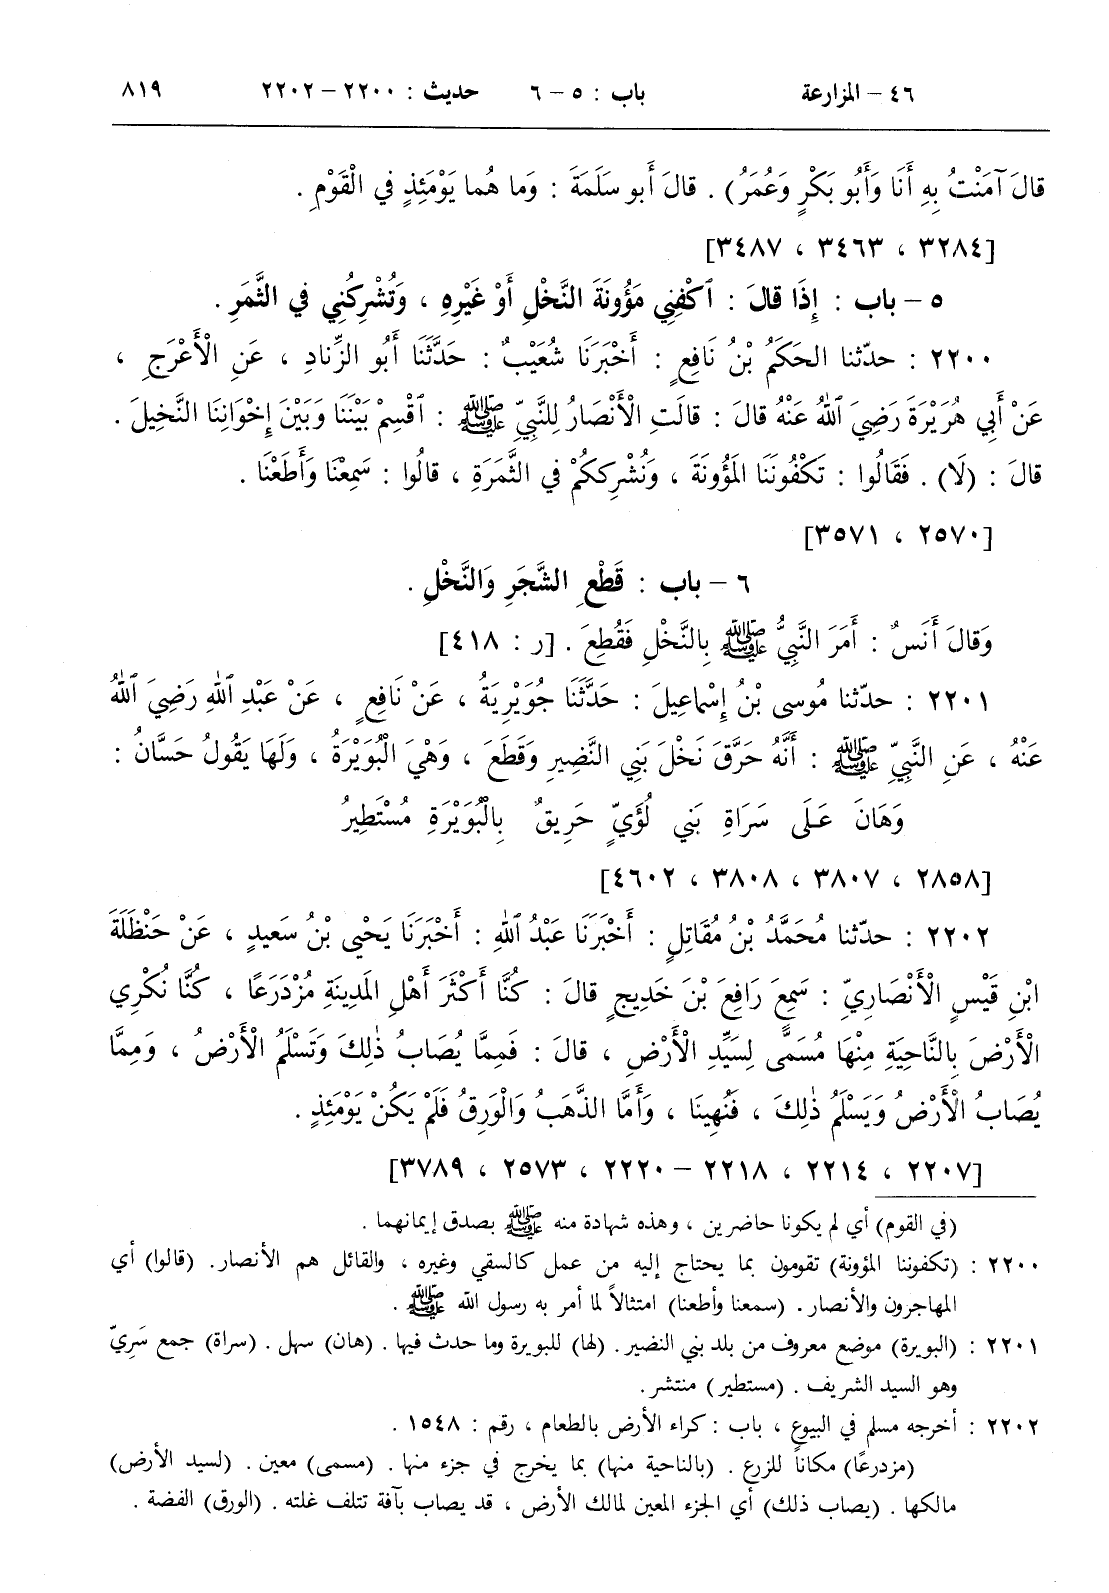 ٤٦ – المزارعة باب : ٥ – ٦ حديث : ٢٢٠٠ – ٢٢٠٢ ٨١٩
قالَ آمَنْتُ بِهِ أَنَا وَأَبُو بَكْرٍ وَعُمَرُ) . قالَ أَبو سَلَمَةَ : وَما هُما يَوْمَئِذٍ في الْقَوْمِ .
[٣٢٨٤ ، ٣٤٦٣ ، ٣٤٨٧]
٥ – باب : إِذَا قالَ : ٱكْفِنِي مَؤُونَةَ النَّخْلِ أَوْ غَيْرِهِ ، وَتُشْرِكُنِي في الثَّمَرِ .
٢٢٠٠ : حدّثنا الحَكَمُ بْنُ نَافِعٍ : أَخْبَرَنَا شُعَيْبٌ : حَدَّثَنَا أَبُو الزِّنادِ ، عَنِ الْأَعْرَجِ ،
عَنْ أَبِي هُرَيْرَةَ رَضِيَ ٱللهُ عَنْهُ قالَ : قالَتِ الْأَنْصَارُ لِلنَّبِيِّ ﷺ : ٱقْسِمْ بَيْنَنَا وَبَيْنَ إِخْوَانِنَا النَّخِيلَ .
قالَ : (لَا) . فَقَالُوا : تَكْفُونَنَا المَؤُونَةَ ، وَنُشْرِككُمْ في الثَّمَرَةِ ، قالُوا : سَمِعْنَا وَأَطَعْنَا .
[٢٥٧٠ ، ٣٥٧١]
٦ – باب : قَطْعِ الشَّجَرِ وَالنَّخْلِ .
وَقالَ أَنَسٌ : أَمَرَ النَّبِيُّ ﷺ بِالنَّخْلِ فَقُطِعَ . [ر : ٤١٨]
٢٢٠١ : حدّثنا مُوسى بْنُ إِسْماعِيلَ : حَدَّثَنَا جُوَيْرِيَةُ ، عَنْ نَافِعٍ ، عَنْ عَبْدِ ٱللهِ رَضِيَ ٱللهُ
عَنْهُ ، عَنِ النَّبِيِّ ﷺ : أَنَّهُ حَرَّقَ نَخْلَ بَنِي النَّضِيرِ وَقَطَعَ ، وَهْيَ الْبُوَيْرَةُ ، وَلَهَا يَقُولُ حَسَّانُ :
وَهَانَ عَلَى سَرَاةِ بَنِي لُؤَيٍّ حَرِيقٌ بِالْبُوَيْرَةِ مُسْتَطِيرُ
[٢٨٥٨ ، ٣٨٠٧ ، ٣٨٠٨ ، ٤٦٠٢]
٢٢٠٢ : حدّثنا مُحَمَّدُ بْنُ مُقَاتِلٍ : أَخْبَرَنَا عَبْدُ ٱللهِ : أَخْبَرَنَا يَحْيى بْنُ سَعيدٍ ، عَنْ حَنْظَلَةَ
ابْنِ قَيْسٍ الْأَنْصَارِيِّ : سَمِعَ رَافِعَ بْنَ خَدِيجٍ قالَ : كُنَّا أَكْثَرَ أَهْلِ المَدِينَةِ مُزْدَرَعًا ، كُنَّا نُكْرِي
الْأَرْضَ بِالنَّاحِيَةِ مِنْهَا مُسَمًّى لِسَيِّدِ الْأَرْضِ ، قالَ : فَمِمَّا يُصَابُ ذٰلِكَ وَتَسْلَمُ الْأَرْضُ ، وَمِمَّا
يُصَابُ الْأَرْضُ وَيَسْلَمُ ذٰلِكَ ، فَنُهِينَا ، وَأَمَّا الذَّهَبُ وَالْوَرِقُ فَلَمْ يَكُنْ يَوْمَئِذٍ .
[٢٢٠٧ ، ٢٢١٤ ، ٢٢١٨ – ٢٢٢٠ ، ٢٥٧٣ ، ٣٧٨٩]
(في القوم) أي لم يكونا حاضرين ، وهذه شهادة منه ﷺ بصدق إيمانهما .
٢٢٠٠ : (تكفوننا المؤونة) تقومون بما يحتاج إليه من عمل كالسقي وغيره ، والقائل هم الأنصار. (قالوا) أي
المهاجرون والأنصار . (سمعنا وأطعنا) امتثالاً لما أمر به رسول الله ﷺ .
٢٢٠١ : (البويرة) موضع معروف من بلد بني النضير . (لها) للبويرة وما حدث فيها . (هان) سهل . (سراة) جمع سَرِيّ
وهو السيد الشريف . (مستطير) منتشر.
٢٢٠٢ : أخرجه مسلم في البيوع ، باب : كراء الأرض بالطعام ، رقم : ١٥٤٨ .
(مزدرعًا) مكاناً للزرع . (بالناحية منها) بما يخرج في جزء منها . (مسمى) معين . (لسيد الأرض)
مالكها . (يصاب ذلك) أي الجزء المعين لمالك الأرض ، قد يصاب بآفة تتلف غلته . (الورق) الفضة .